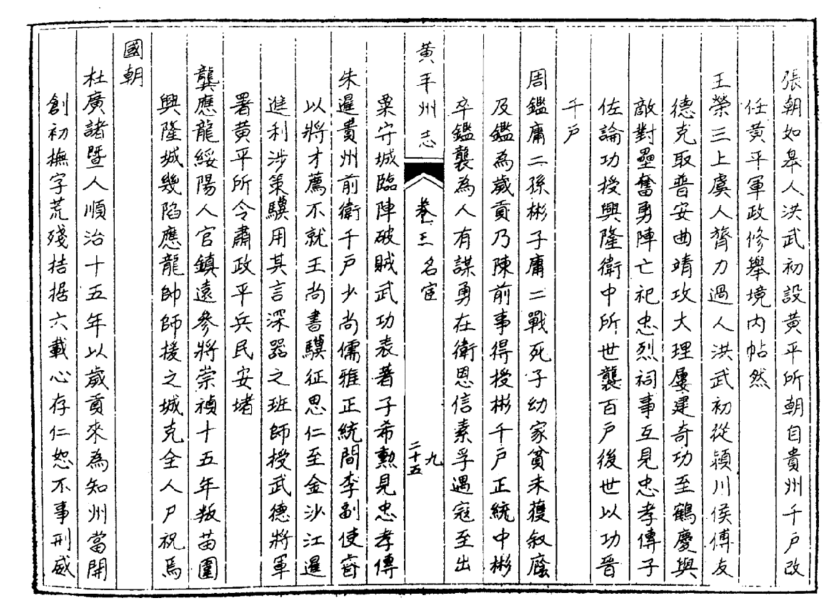 張朝如皋人洪武初設黃平所朝自貴州千戶改
任黃平軍政修舉境內帖然
王榮三上虞人膂力過人洪武初從潁川侯傅友
德克取普安曲靖攻大理屢建奇功至鶴慶與
敵對壘奮勇陣亡祀忠烈祠事互見忠孝傳子
佐論功授興隆衛中所世襲百戶後世以功晉
千戶
周鑑庸二孫彬子庸二戰死子幼家貧未獲敘廕
及鑑為歲貢乃陳前事得授彬千戶正統中彬
卒鑑襲為人有謀勇在衛恩信素孚遇寇至出
黃平州志
卷三名宦
九
二十五
粟守城臨陣破賊武功表著子希勲見忠孝傳
朱暹貴州前衛千戶少尚儒雅正統間李副使睿
以將才薦不就王尚書驥征思仁至金沙江暹
進利涉策驥用其言深器之班師授武德將軍
署黃平所令肅政平兵民安堵
龔應龍綏陽人官鎮遠參將崇禎十五年叛苗圍
興隆城幾陷應龍帥師援之城克全人尸祝焉
國朝
杜廣諸暨人順治十五年以歲貢來為知州當開
創初撫字荒殘拮据六載心存仁恕不事刑威